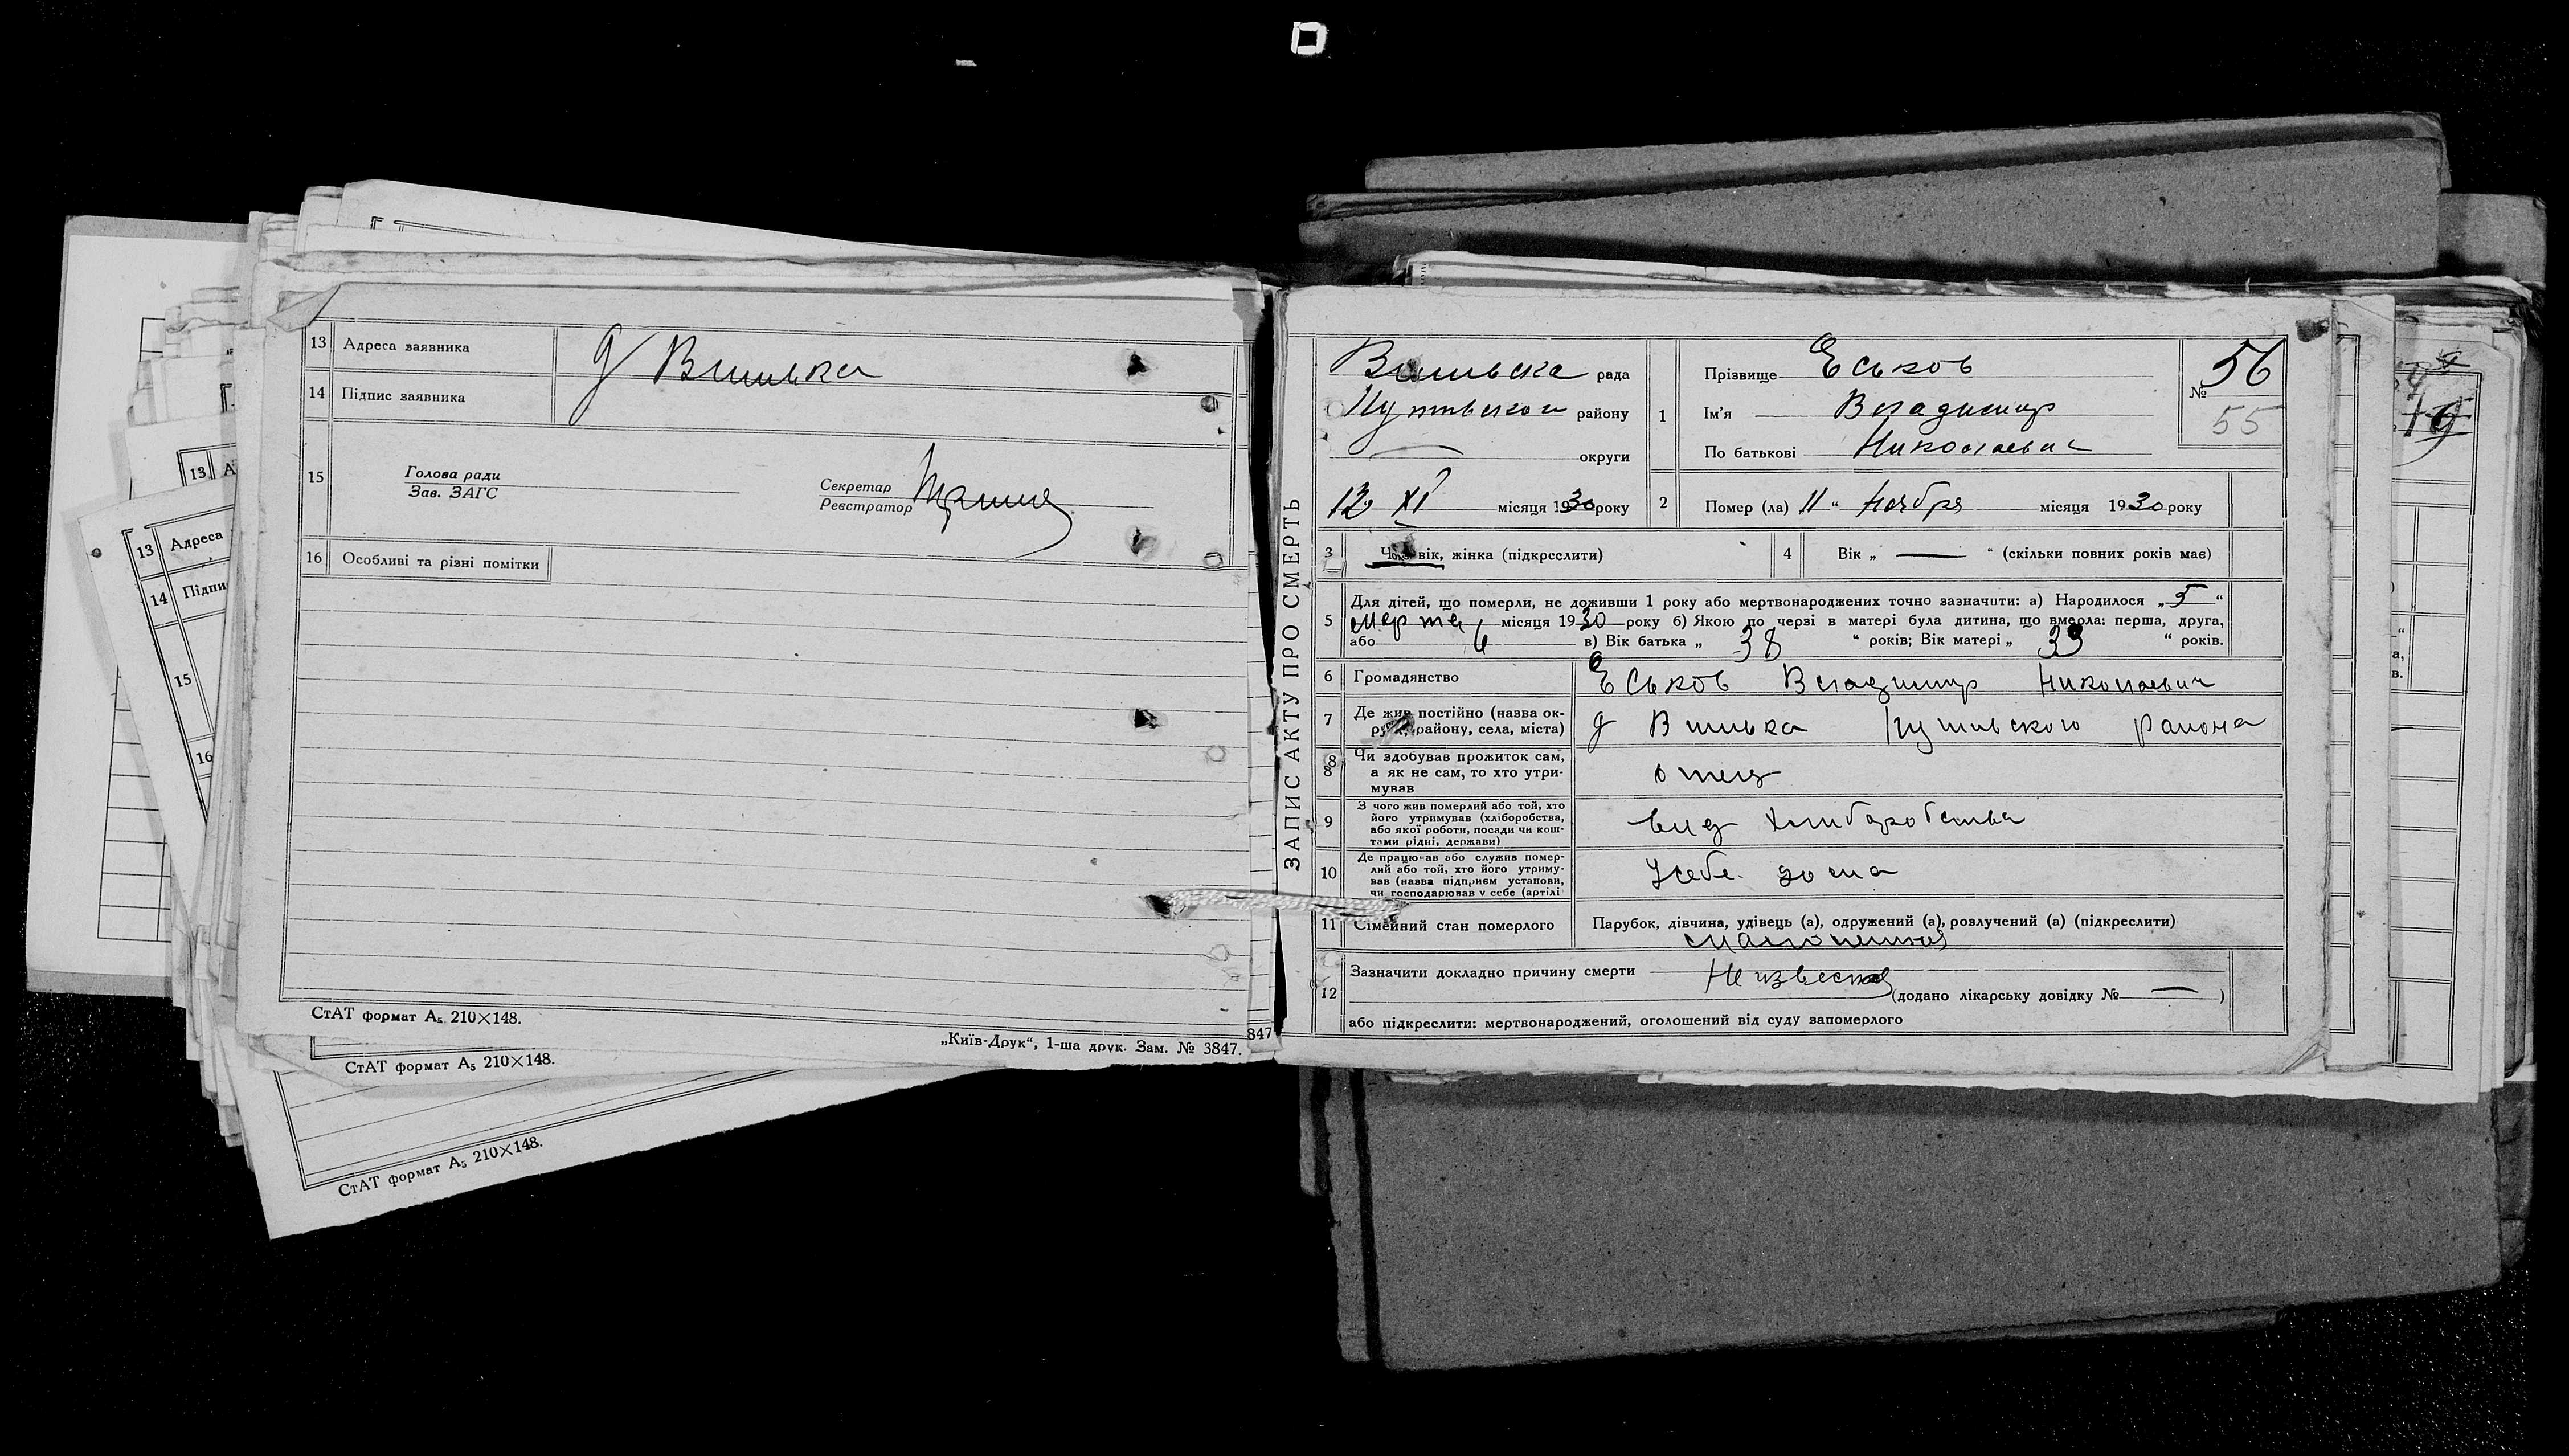 13 Адреса заявника д Вшивка
14 Підпис заявника
15 Голова ради
Зав. ЗАГС
Секретар
Реєстратор
16 Особливі та різні помітки
СтАТ формат А₅ 210×148.
„Київ-Друк“, 1-ша друк. Зам. № 3847.
847
СтАТ формат А₅ 210×148.
СтАТ формат А₅ 210×148.
13 А
13 Адреса
14 Підпи
15
16
ЗАПИС АКТУ ПРО СМЕРТЬ
рада
району
округи
12 XI місяця 1930 року
1 Прізвище Еськов
Ім'я Владимир
По батькові Николаевич
№ 56
55
2 Помер (ла) 11 “ ноября місяця 1930 року
3 Чоловік, жінка (підкреслити)
4 Вік „ — “ (скільки повних років має)
5 Для дітей, що померли, не доживши 1 року або мертвонароджених точно зазначити: а) Народилося „ 5 “
Марта місяця 1930 року б) Якою по черзі в матері була дитина, що вмерла: перша, друга,
або 6 в) Вік батька „ 38 “ років; Вік матері „ 33 “ років.
6 Громадянство Еськов Владимир Николаевич
7 Де жив постійно (назва ок-
руги, району, села, міста) д Вшивка Путивльского района
8 Чи здобував прожиток сам,
а як не сам, то хто утри-
мував отец
9 З чого жив померлий або той, хто
його утримував (хліборобства,
або якої роботи, посади чи кош-
тами рідні, держави) вид хлиборобства
10 Де працював або служив помер-
лий або той, хто його утриму-
вав (назва підприєм установи,
чи господарював у себе (артілі у себе дома
11 Сімейний стан померлого Парубок, дівчина, удівець (а), одружений (а), розлучений (а) (підкреслити)
12 Зазначити докладно причину смерти Не извесно
(додано лікарську довідку № — )
або підкреслити: мертвонароджений, оголошений від суду запомерлого